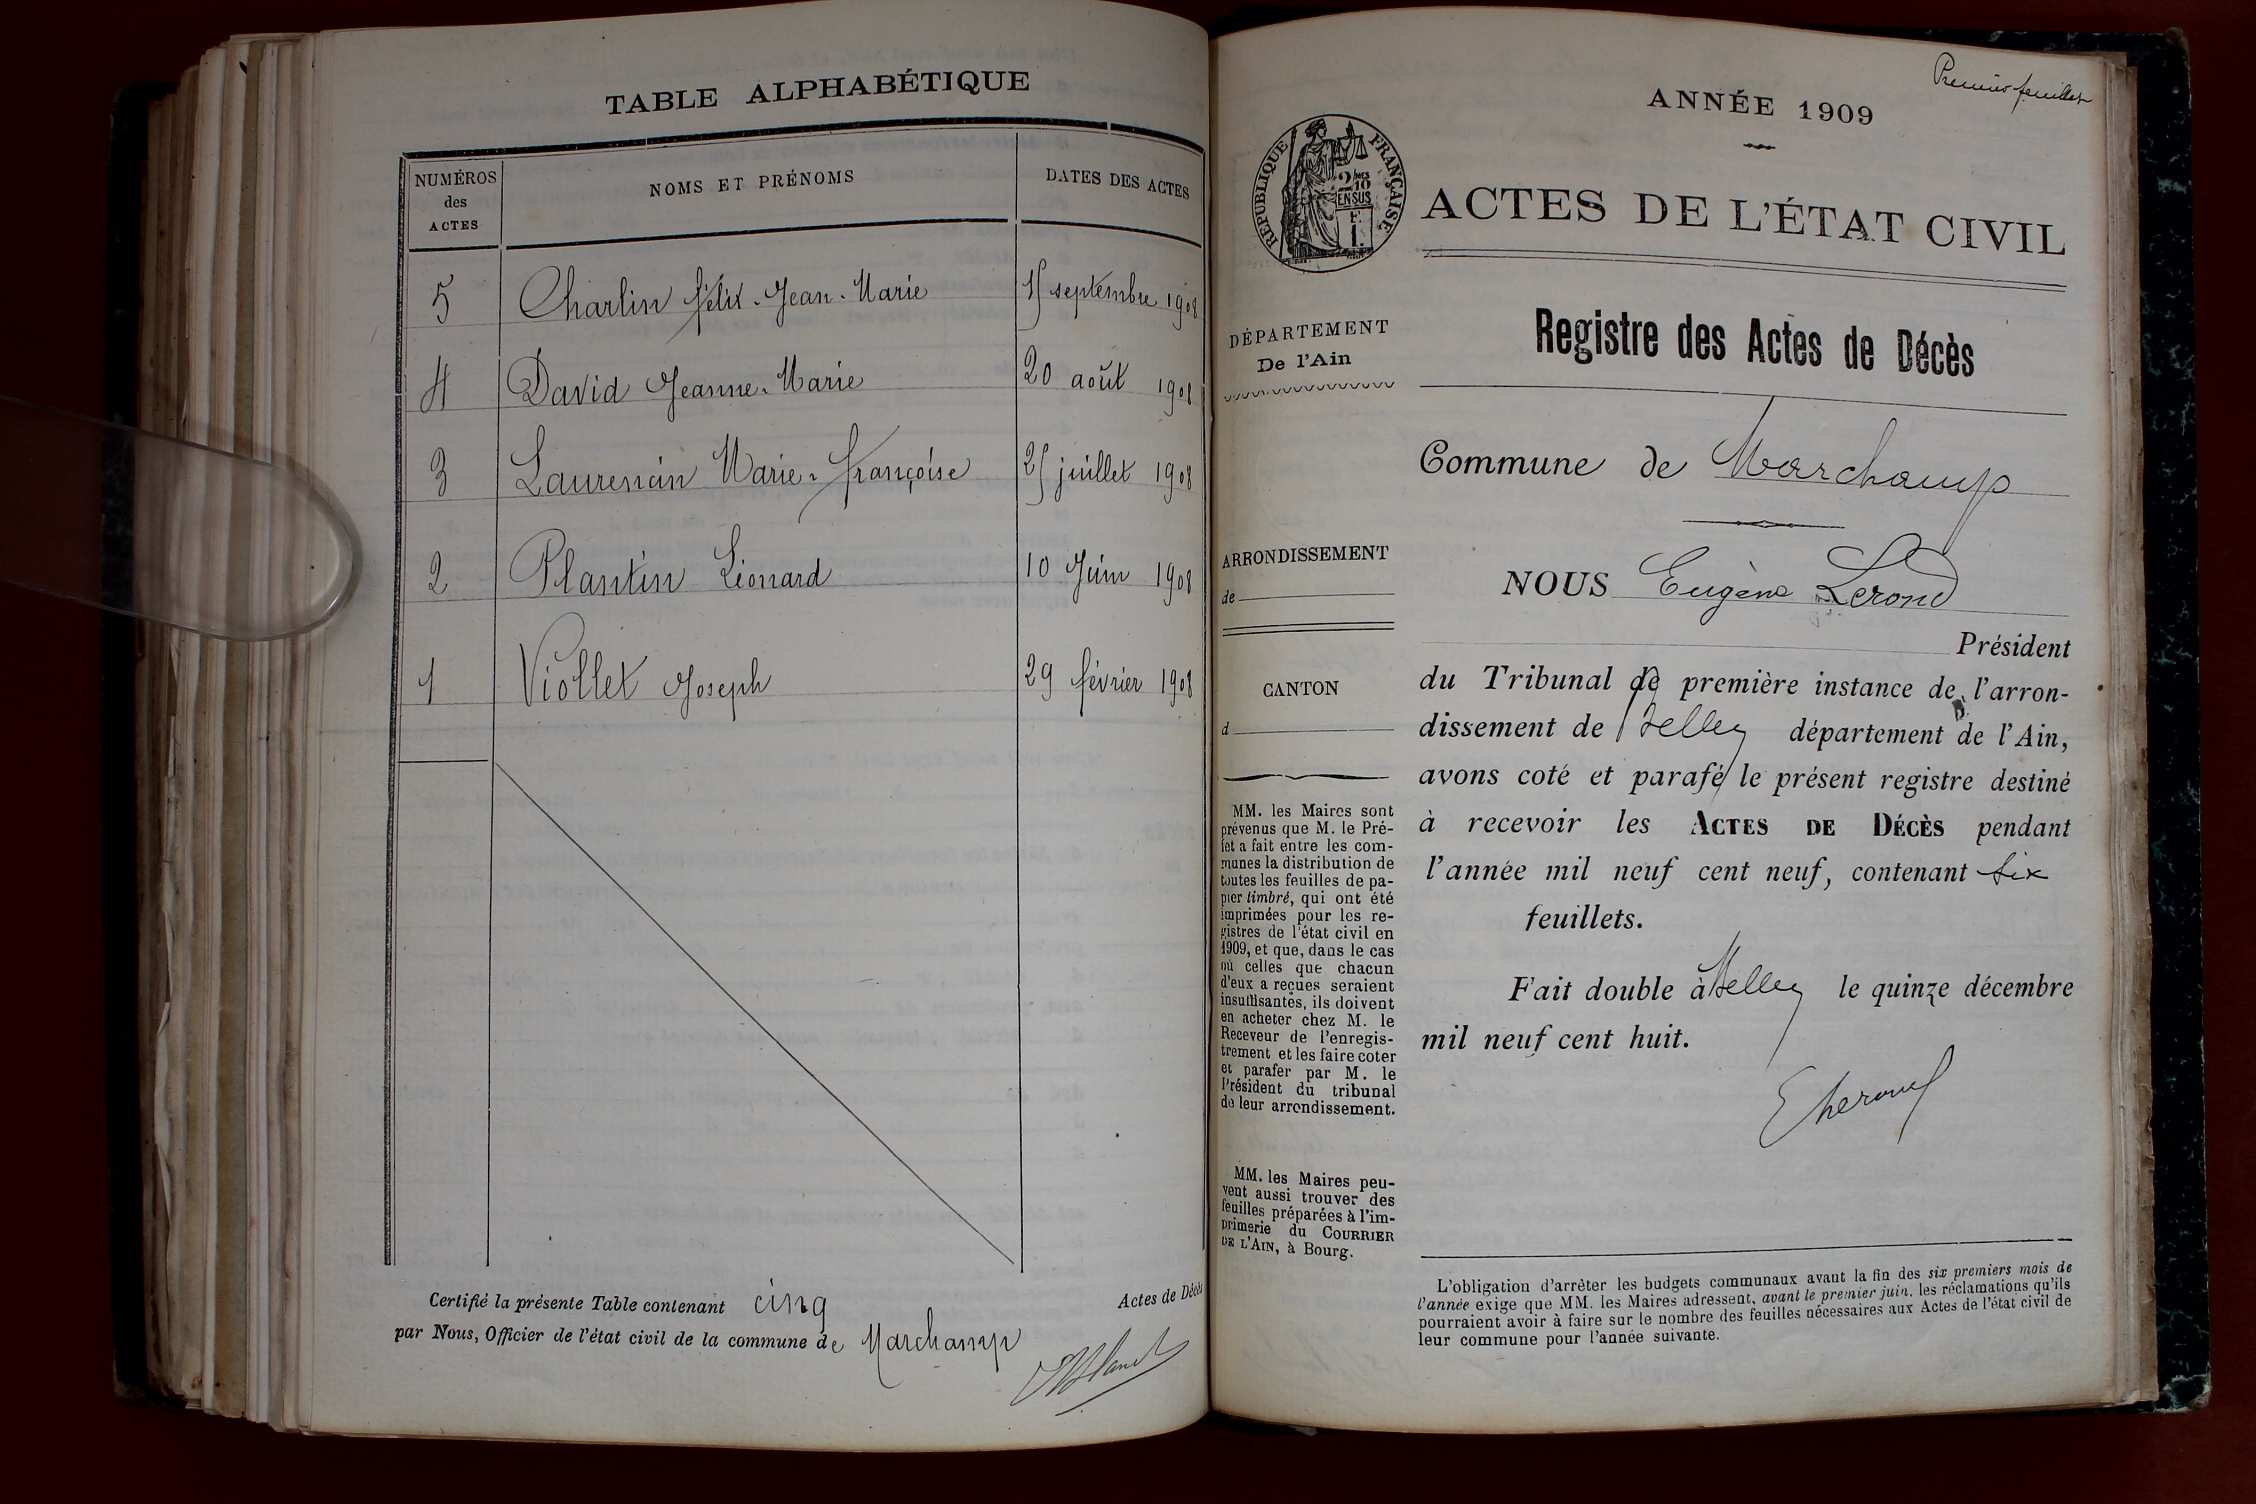 TABLE ALPHABÉTIQUE
NUMÉROS des ACTES
NOMS ET PRÉNOMS
DATES DES ACTES
5 Charlin félix-Jean-Marie 15 septembre 1908
4 David Jeanne-Marie 20 août 1908
3 Laurencin Marie-françoise 25 juillet 1908
2 Plantin Léonard 10 Juin 1908
1 Viollet Joseph 29 février 1908
Certifié la présente Table contenant cinq Actes de Décès
par Nous, Officier de l'état civil de la commune de Marchamp
Premier feuillet
ANNÉE 1909
RÉPUBLIQUE FRANÇAISE
2/10 EN SUS
F. 1.
ACTES DE L'ÉTAT CIVIL
DÉPARTEMENT
De l'Ain
Registre des Actes de Décès
Commune de Marchamp
ARRONDISSEMENT
de
CANTON
d
NOUS Eugène Lerond
Président
du Tribunal de première instance de l'arron-
dissement de Belley département de l'Ain,
avons coté et parafé le présent registre destiné
à recevoir les ACTES DE DÉCÈS pendant
l'année mil neuf cent neuf, contenant six
feuillets.
Fait double à Belley le quinze décembre
mil neuf cent huit.
MM. les Maires sont
prévenus que M. le Pré-
fet a fait entre les com-
munes la distribution de
toutes les feuilles de pa-
pier timbré, qui ont été
imprimées pour les re-
gistres de l'état civil en
1909, et que, dans le cas
où celles que chacun
d'eux a reçues seraient
insuffisantes, ils doivent
en acheter chez M. le
Receveur de l'enregis-
trement et les faire coter
et parafer par M. le
Président du tribunal
de leur arrondissement.
MM. les Maires peu-
vent aussi trouver des
feuilles préparées à l'im-
primerie du COURRIER
DE L'AIN, à Bourg.
L'obligation d'arrêter les budgets communaux avant la fin des six premiers mois de
l'année exige que MM. les Maires adressent, avant le premier juin, les réclamations qu'ils
pourraient avoir à faire sur le nombre des feuilles nécessaires aux Actes de l'état civil de
leur commune pour l'année suivante.